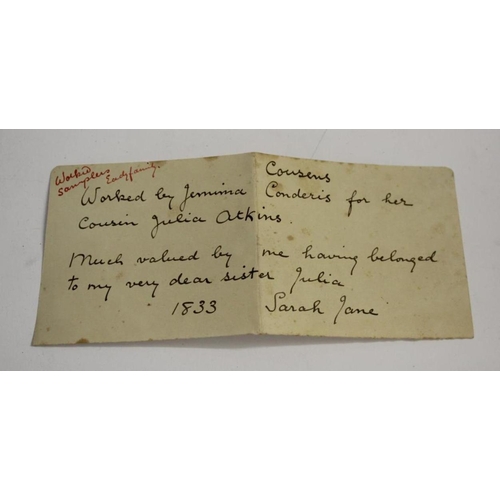 Worked
samplers Eady family.
Cousens
Worked by Jemima Conderis for her
Cousin Julia Atkins.
Much valued by me having belonged
to my very dear sister Julia
1833 Sarah Jane